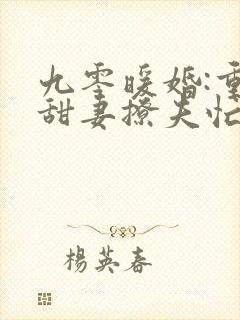 九零暖婚:重
甜妻撩夫忙
楊英春